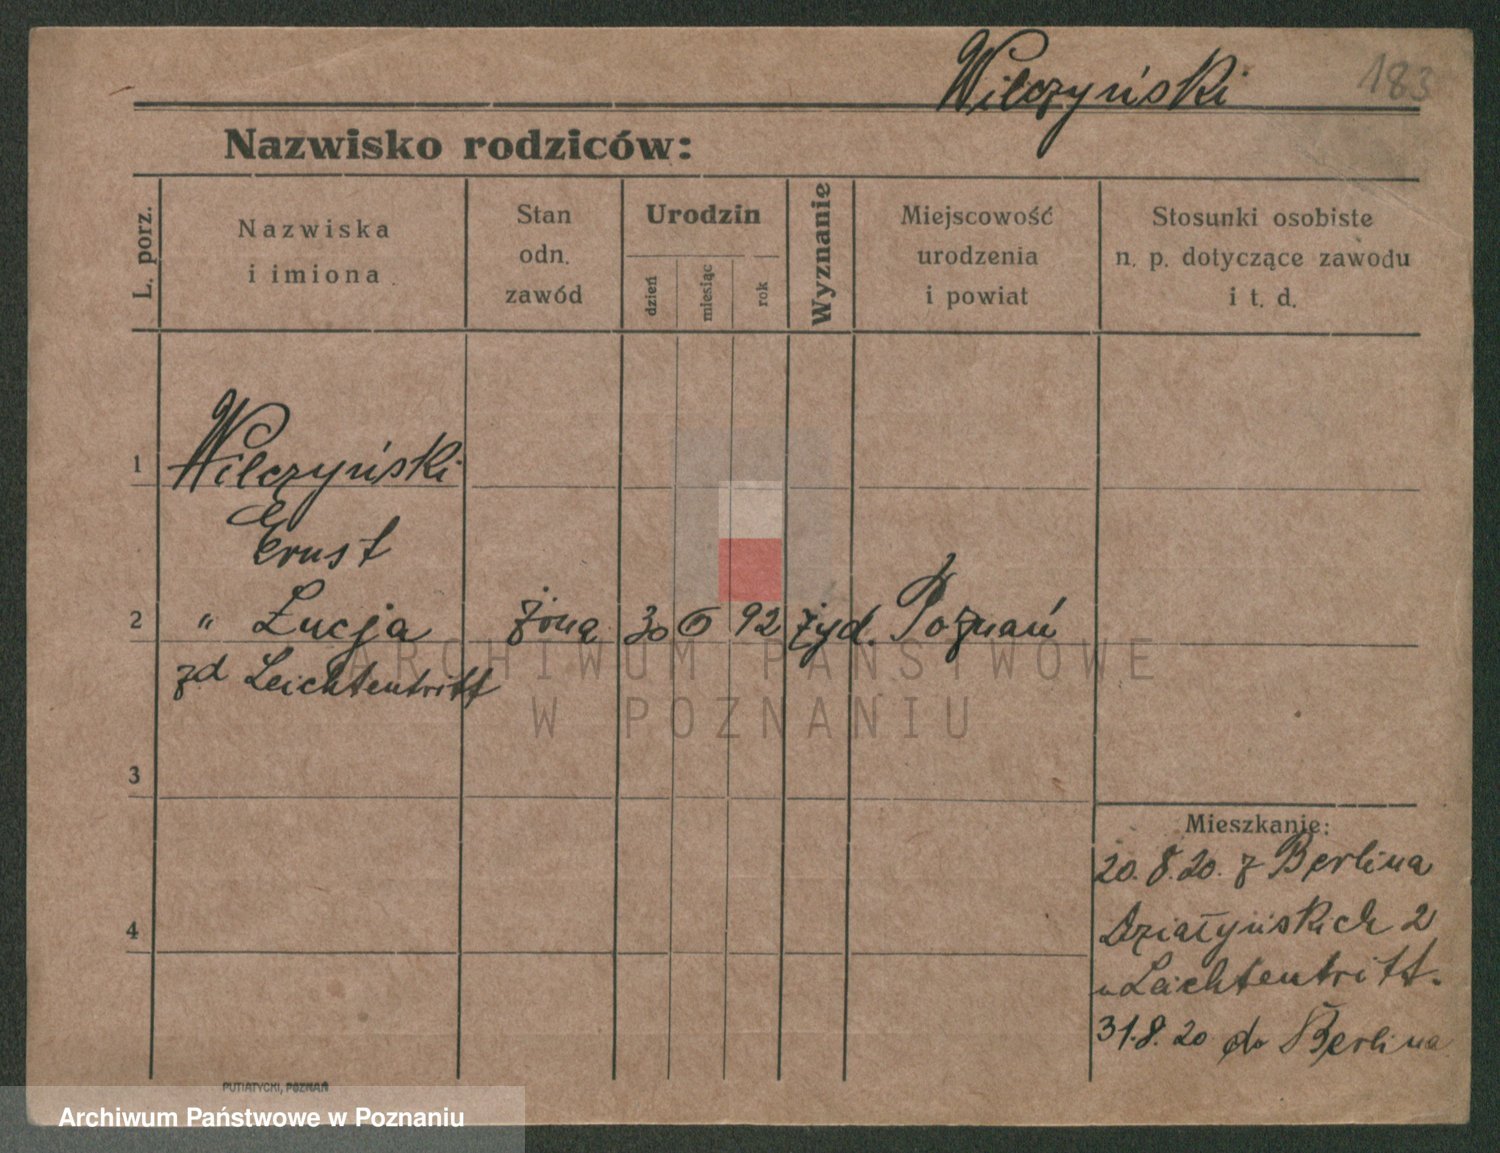 Wilczyński
183
Nazwisko rodziców:
L. porz.
Nazwiska
i imiona
Stan
odn.
zawód
Urodzin
dzień
miesiąc
rok
Wyznanie
Miejscowość
urodzenia
i powiat
Stosunki osobiste
n. p. dotyczące zawodu
i t. d.
1 Wilczyński
Ernst
2 " Łucja żona 30 6 92 żyd. Poznań
zd Leichtentritt
ARCHIWUM PAŃSTWOWE
W POZNANIU
3
Mieszkanie:
20.8.20. z Berlina
4 Działyńskich 2
u Leichtentritt.
31.8.20 do Berlina
PUTIATYCKI, POZNAŃ
Archiwum Państwowe w Poznaniu